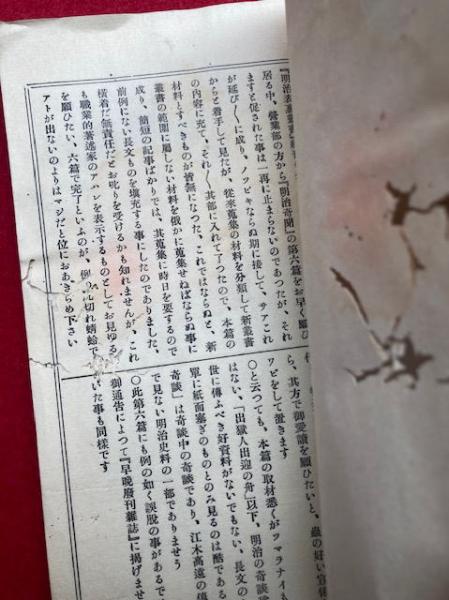 『明治表裏叢書
居る中、營業部の方から『明治奇聞』の第六篇をお早く願ひ
ますと促された事は一再に止まらないのであつたが、それ
が延び〱に成り、ノツピキならぬ期に接して、サアこれ
からと着手して見たが、從來蒐集の材料を分類して新叢書
の内容に充て、それ〲其部に入れて了つたので、本篇の
材料とすべきものが皆無になつた、これではならぬと、新
叢書の範圍に屬しない材料を俄かに蒐集せねばならぬ事に
成り、簡短の記事ばかりでは、其蒐集に時日を要するので
前例にない長文ものを填充する事にしたのでありました、
橫着だ無責任だとお叱りを受けるかも知れませんが、これ
も職業的著述家のアハレを表示するものとしてお見ゆる
を願ひたい、六篇で完了といふのが、例の尻切れ蜻蛉で
アトが出ないのよりはマシだと位におあきらめ下さい
ら、其方で御愛讀を願ひたいと、蟲の好い宣傳
ワビをして置きます
〇と云つても、本篇の取材悉くがツマラナイも
はない、「出獄人出迎の舟」以下、明治の奇談
世に傳ふべき好資料がないでもない、長文の
單に紙面塞ぎのものとのみ見るのは酷である
奇談」は奇談中の奇談であり、江木高遠の傳
で見ない明治史料の一部でありませう
〇此第六篇にも例の如く誤脫の事があるで
御通告によつて『早晩廢刊雜誌』に揭げませ
いた事も同樣です